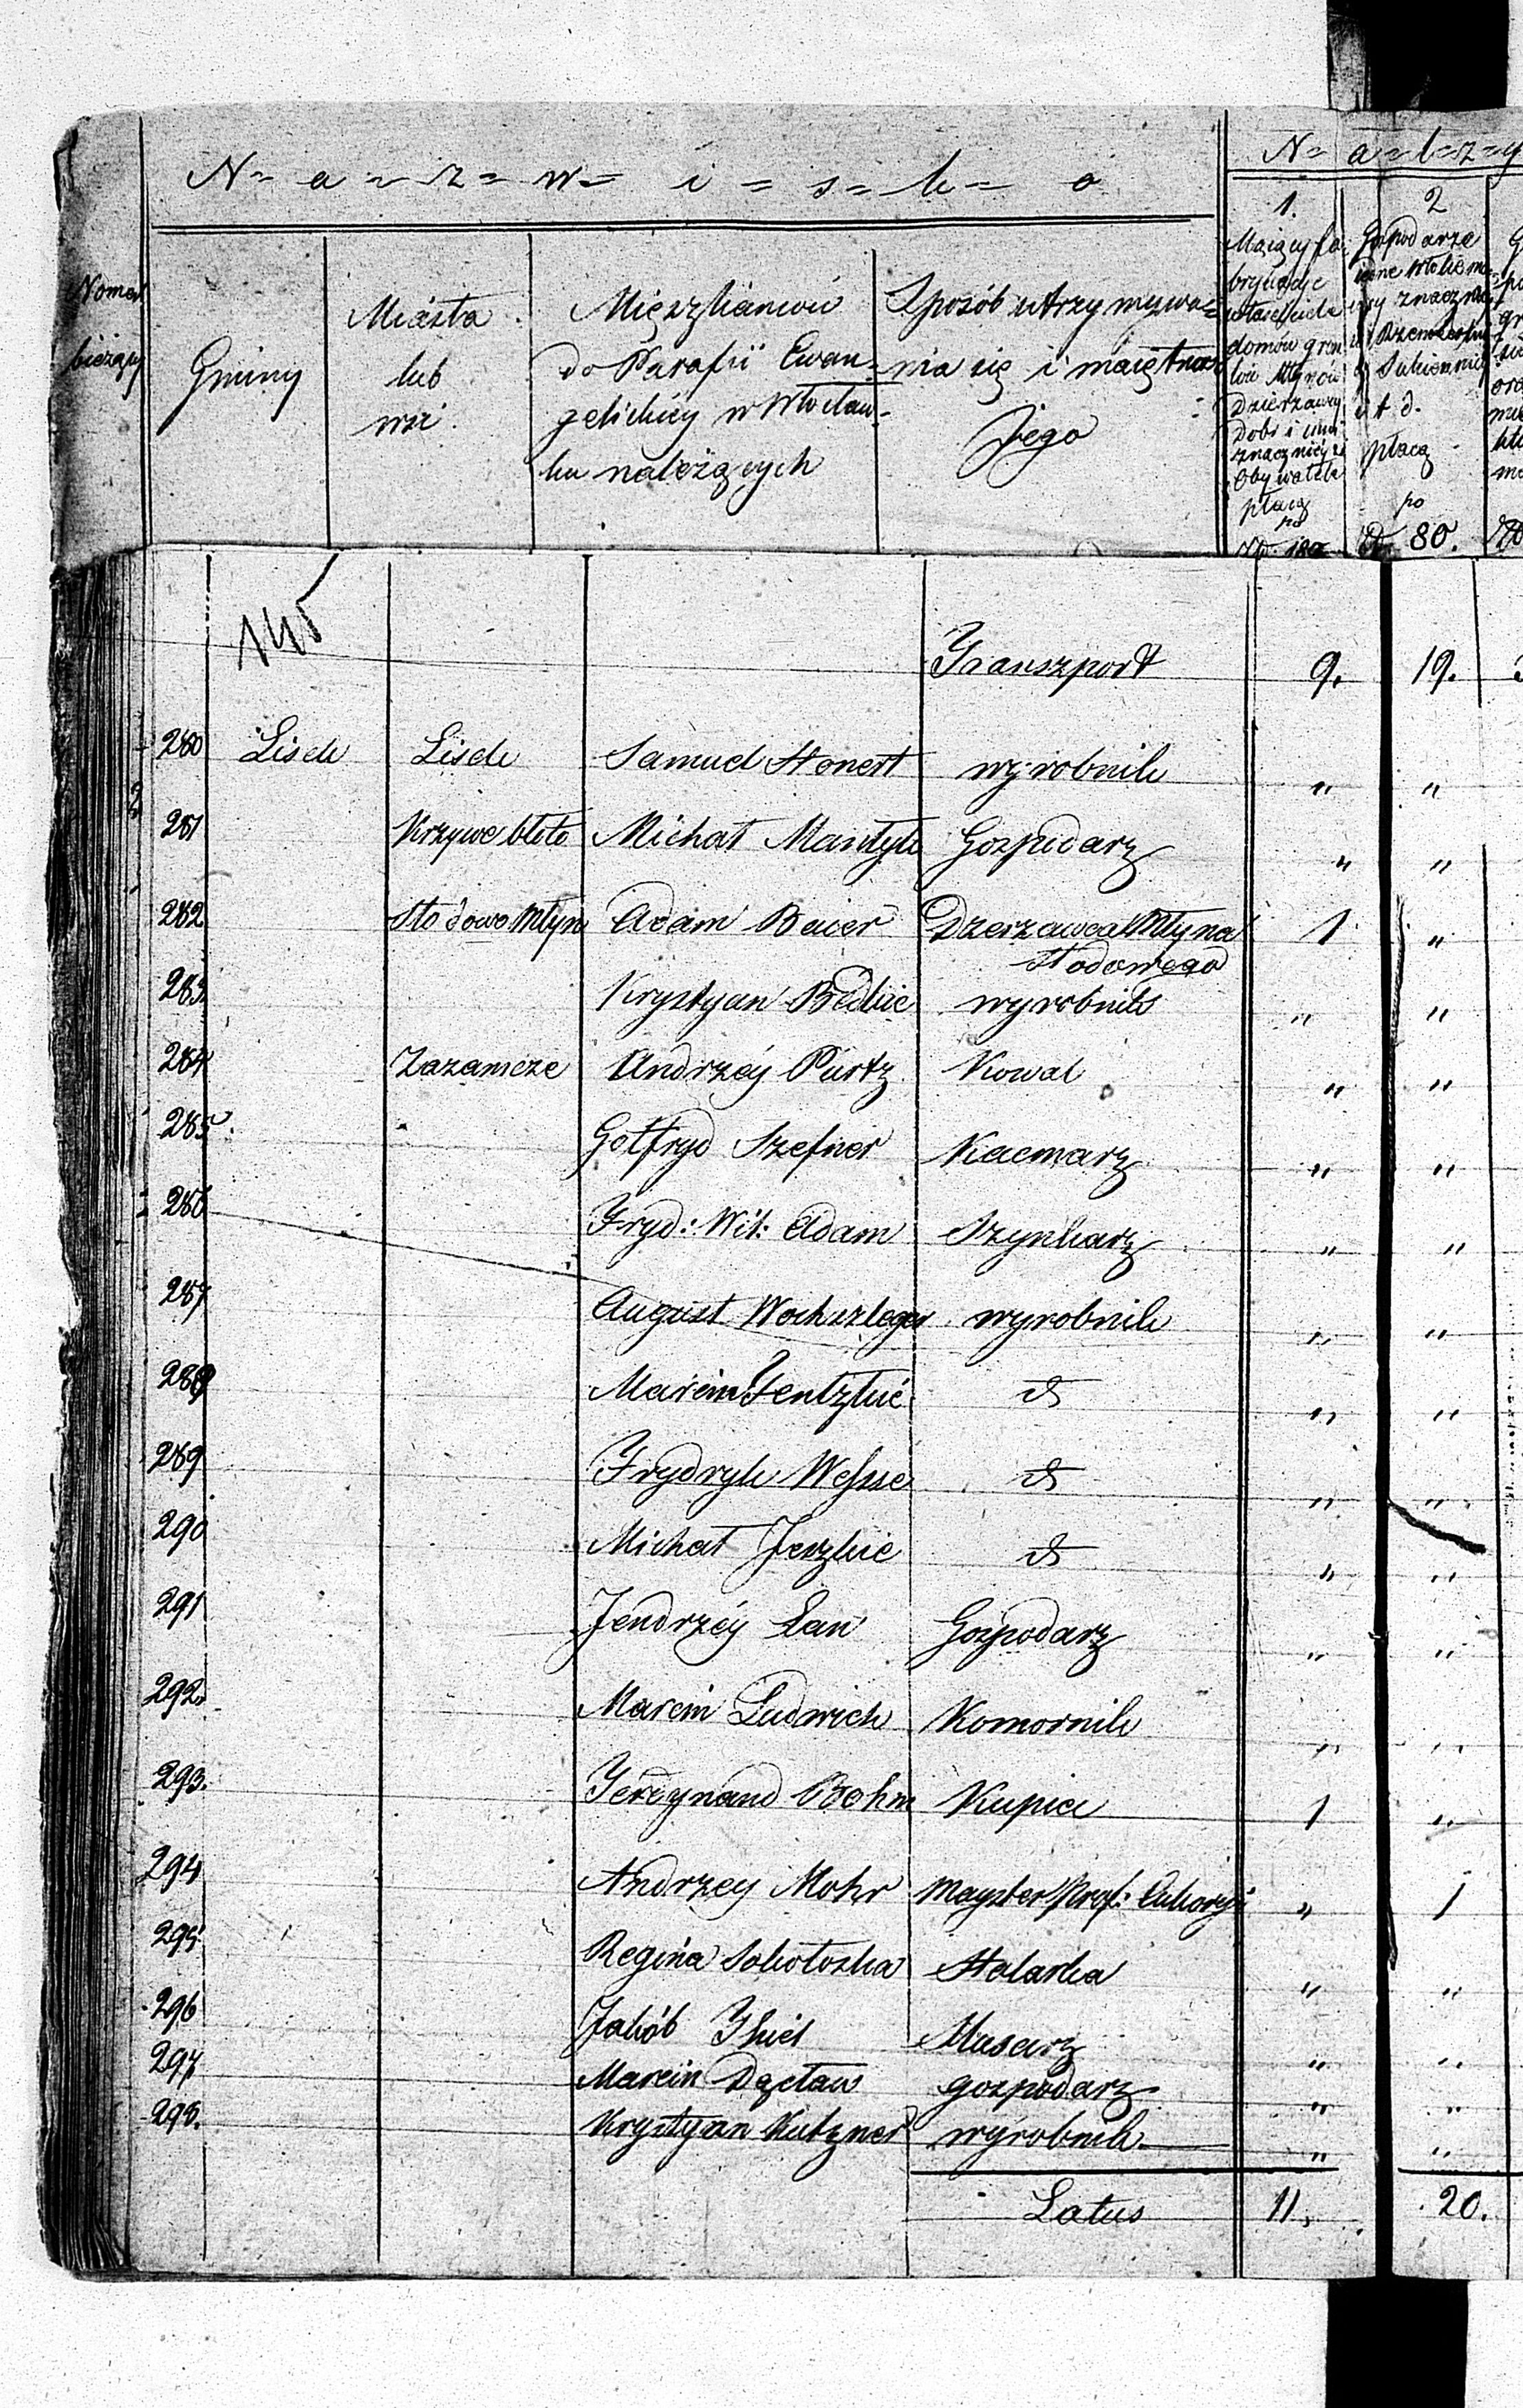 N = a = z = w = i = s = k = o
N = a = l = z = y
Numer bieżący
Gminy
Miasta lub wsi.
Mięszkańców
do Parafii Ewan-
gelickiéy w Włocław-
ku należących
Sposób utrzymywa-
nia się i maiętność
Jego
1.
Maiący fa-
bryki
właściciele
domów grun-
tów Młynów
Dzierzawcy
Dobr i inni
znacznieysi
Obywatele
płacą
po
Zł. 180
2
Gospodarze
znaczni
Rzemieślnicy
Sukiennicy
i t. d.
płacą
po
Zł. 80.
145
Transzport 9. 19.
280 Lisek Lisek Samuel Honert wyrobnik " "
281 Krzywe błoto Michał Mantyk Gospodarz " "
282 Słodowo Młyn Adam Baier Dzerzawca Młyna 1 "
słodowego
283 Krystyan Bedkie wyrobnik " "
284 Zazamcze Andrzéy Purtz Kowal " "
285. Gotfryd Szefner Kacmarz " "
286 Fryd: Wil: Adam Szynkarz " "
287 August Wochszleger wyrobnik " "
288 Marcin Jentzkie d " "
289 Frydryk Wesse d " "
290 Michał Jerzkie d " "
291 Jendrzéy Lan Gospodarz " "
292. Marcin Ludwich Komornik " "
293. Ferdynand Bohm Kupiec 1 "
294 Andrzey Mohr Mayster Prof: Cykoryi " 1
295 Regina Sokołoska Stolarka " "
296 Jakób Thiel Mularz " "
297 Marcin Dęctaw gospodarz " "
298. Krystyan Kutzner wyrobnik " "
Latus 11, 20.